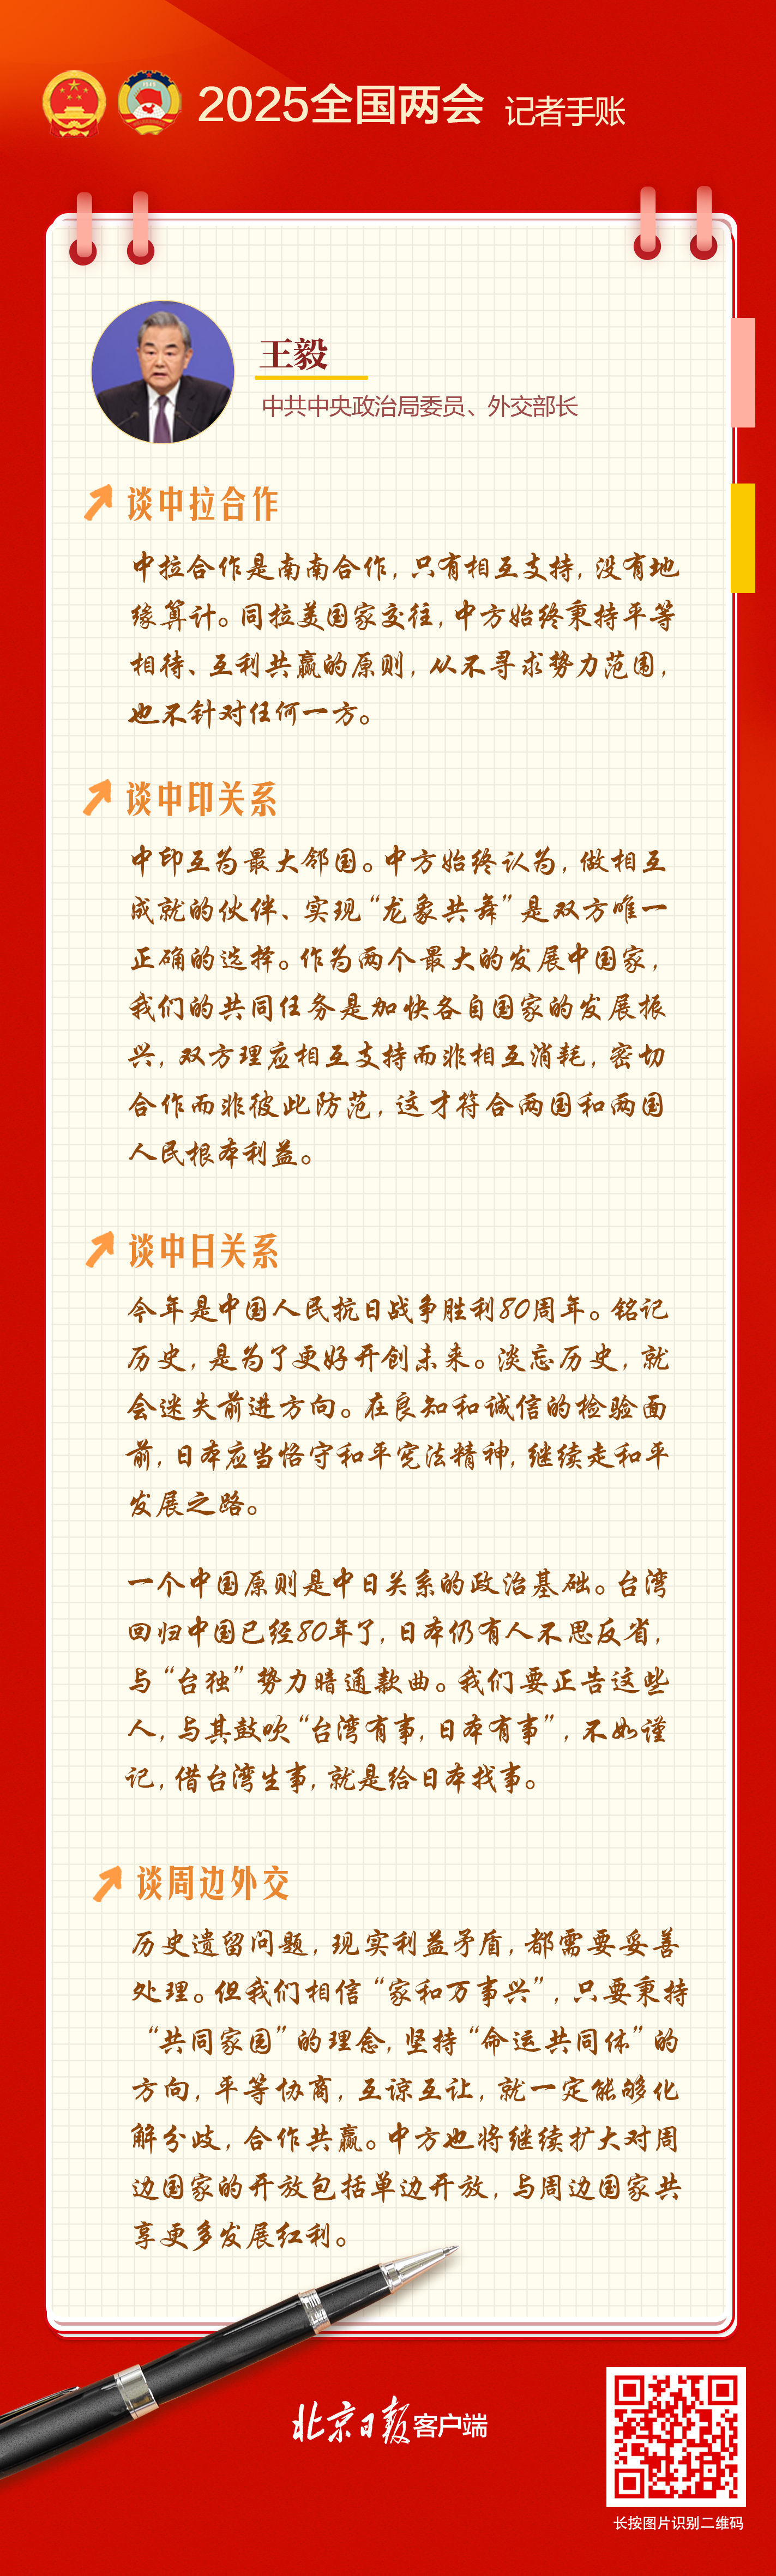 2025全国两会 记者手账
王毅
中共中央政治局委员、外交部长
谈中拉合作
中拉合作是南南合作，只有相互支持，没有地
缘算计。同拉美国家交往，中方始终秉持平等
相待、互利共赢的原则，从不寻求势力范围，
也不针对任何一方。
谈中印关系
中印互为最大邻国。中方始终认为，做相互
成就的伙伴、实现“龙象共舞”是双方唯一
正确的选择。作为两个最大的发展中国家，
我们的共同任务是加快各自国家的发展振
兴，双方理应相互支持而非相互消耗，密切
合作而非彼此防范，这才符合两国和两国
人民根本利益。
谈中日关系
今年是中国人民抗日战争胜利80周年。铭记
历史，是为了更好开创未来。淡忘历史，就
会迷失前进方向。在良知和诚信的检验面
前，日本应当恪守和平宪法精神，继续走和平
发展之路。
一个中国原则是中日关系的政治基础。台湾
回归中国已经80年了，日本仍有人不思反省，
与“台独”势力暗通款曲。我们要正告这些
人，与其鼓吹“台湾有事，日本有事”，不如谨
记，借台湾生事，就是给日本找事。
谈周边外交
历史遗留问题，现实利益矛盾，都需要妥善
处理。但我们相信“家和万事兴”，只要秉持
“共同家园”的理念，坚持“命运共同体”的
方向，平等协商，互谅互让，就一定能够化
解分歧，合作共赢。中方也将继续扩大对周
边国家的开放包括单边开放，与周边国家共
享更多发展红利。
北京日报客户端
长按图片识别二维码